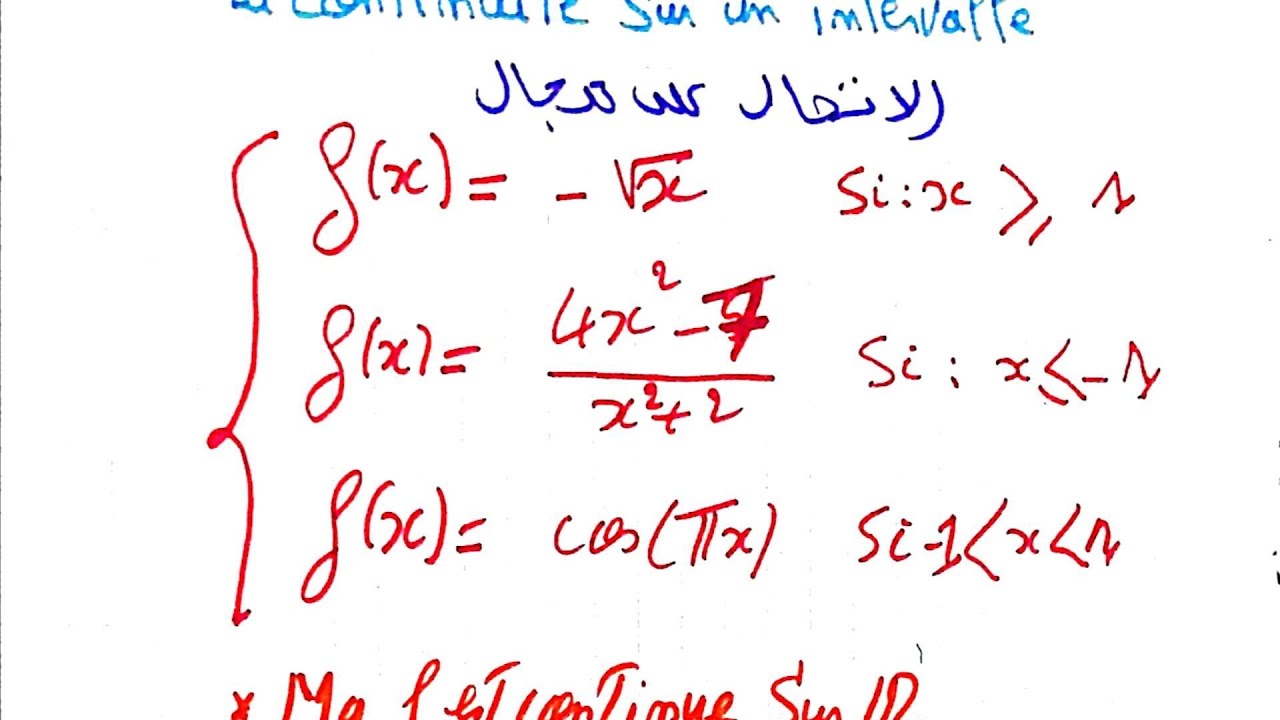 continuité sur un intervalle
الاتصال على مجال
f(x) = - √x si : x ⩾ 1
f(x) = (4x² - 7)/(x² + 2) si : x ≤ -1
f(x) = cos(πx) si -1 < x < 1
* Mq f est continue sur ℝ